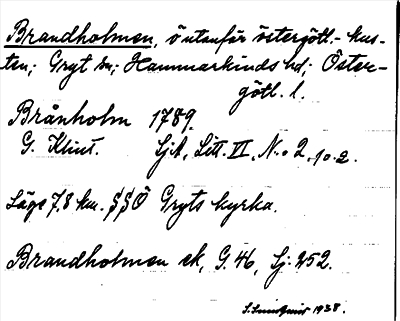 Brandholmen, ö utanför östergötl.- kus-
ten; Gryt sn; Hammarkinds hd; Öster-
götl. l.
Brånholm 1789.
G. Klint. Sjk, Litt. VI, N:o 2, 10.2.
Läge 7,8 km. SSÖ Gryts kyrka.
Brandholmen ek, G. 46, Sj. 252.
S. Lundquist 1938.